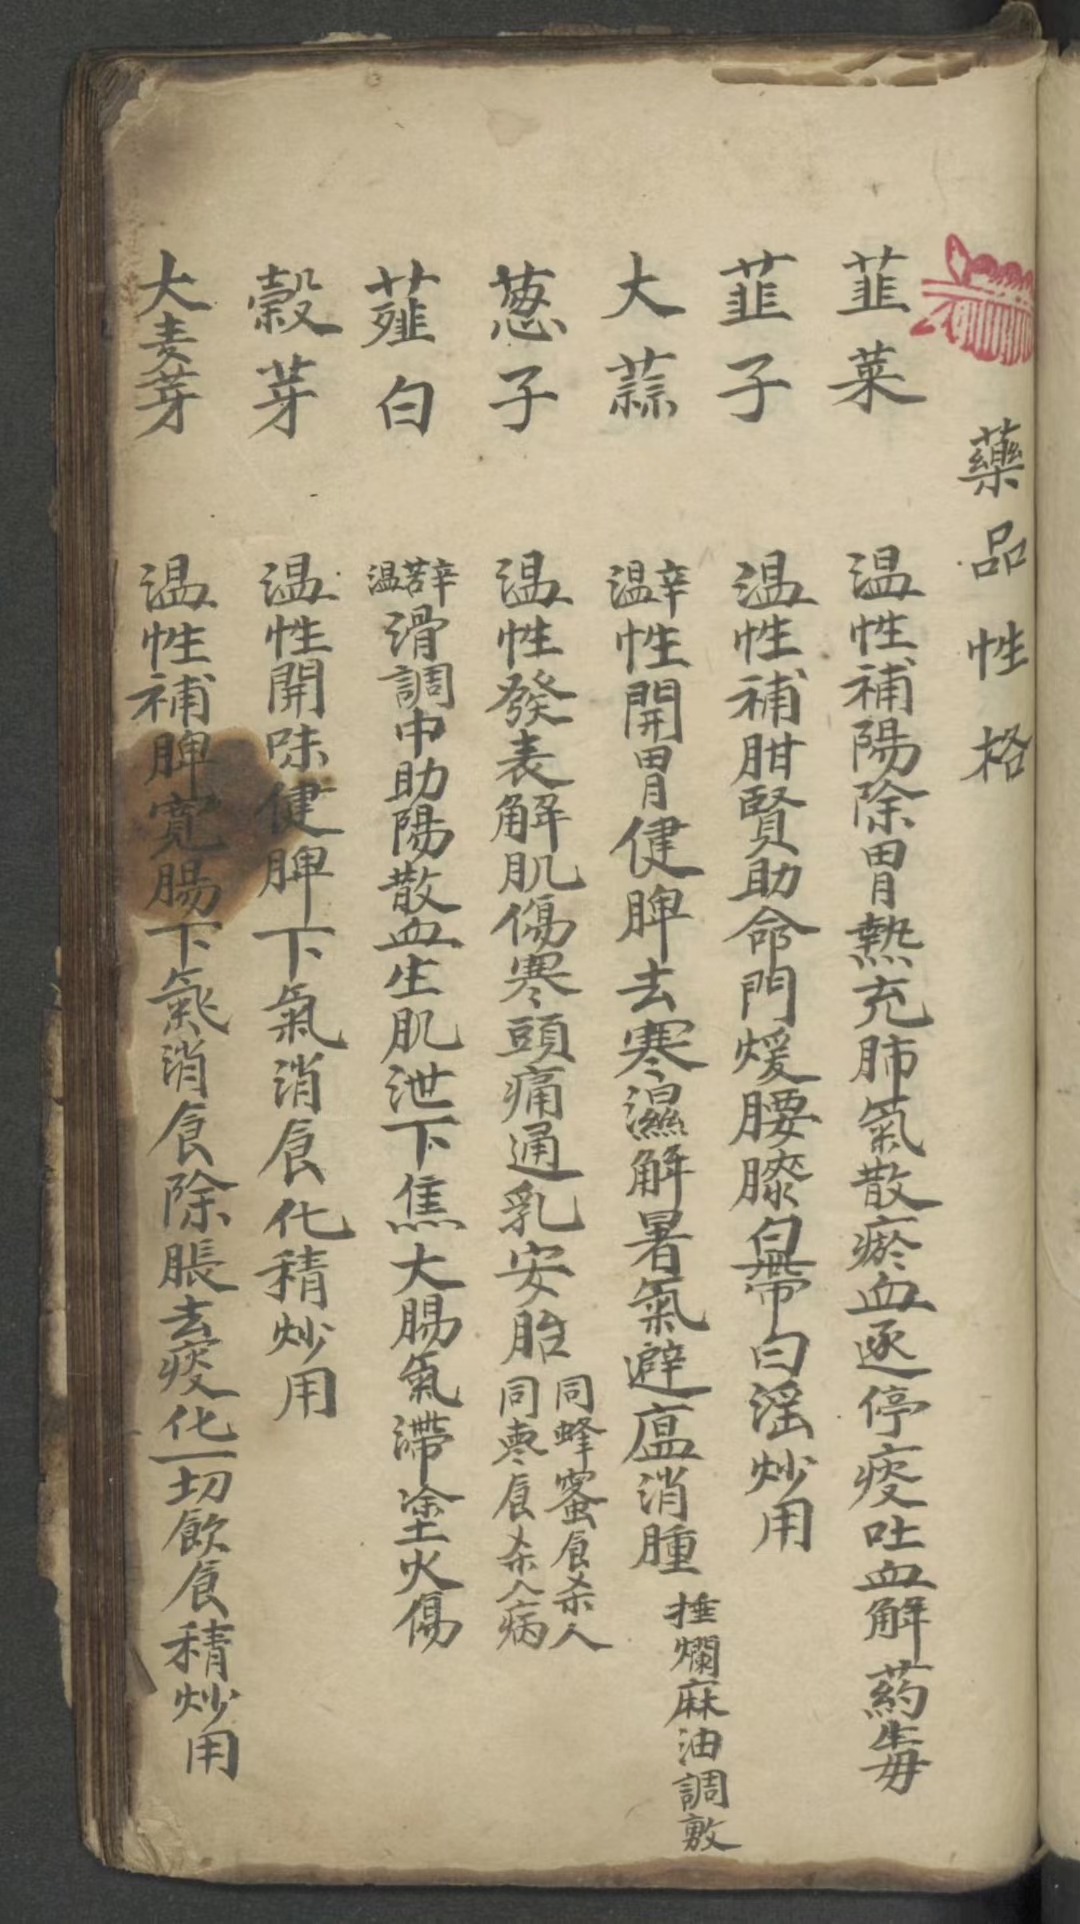 藥品性格
韮菜 温性補陽除胃熱充肺氣散瘀血逐停痰吐血解葯毒
韮子 温性補肝賢助命門煖腰膝白帶白滛炒用
大蒜 辛温性開胃健脾去寒濕解暑氣避瘟消腫 捶爛麻油調敷
葱子 温性發表解肌傷寒頭痛通乳安胎 同蜂蜜食杀人 同枣食杀人病
薤白 辛苦温滑調中助陽散血生肌泄下焦大腸氣滯塗火傷
穀芽 温性開味健脾下氣消食化積炒用
大麦芽 温性補脾寛腸下氣消食除脹去痰化一切飲食積炒用